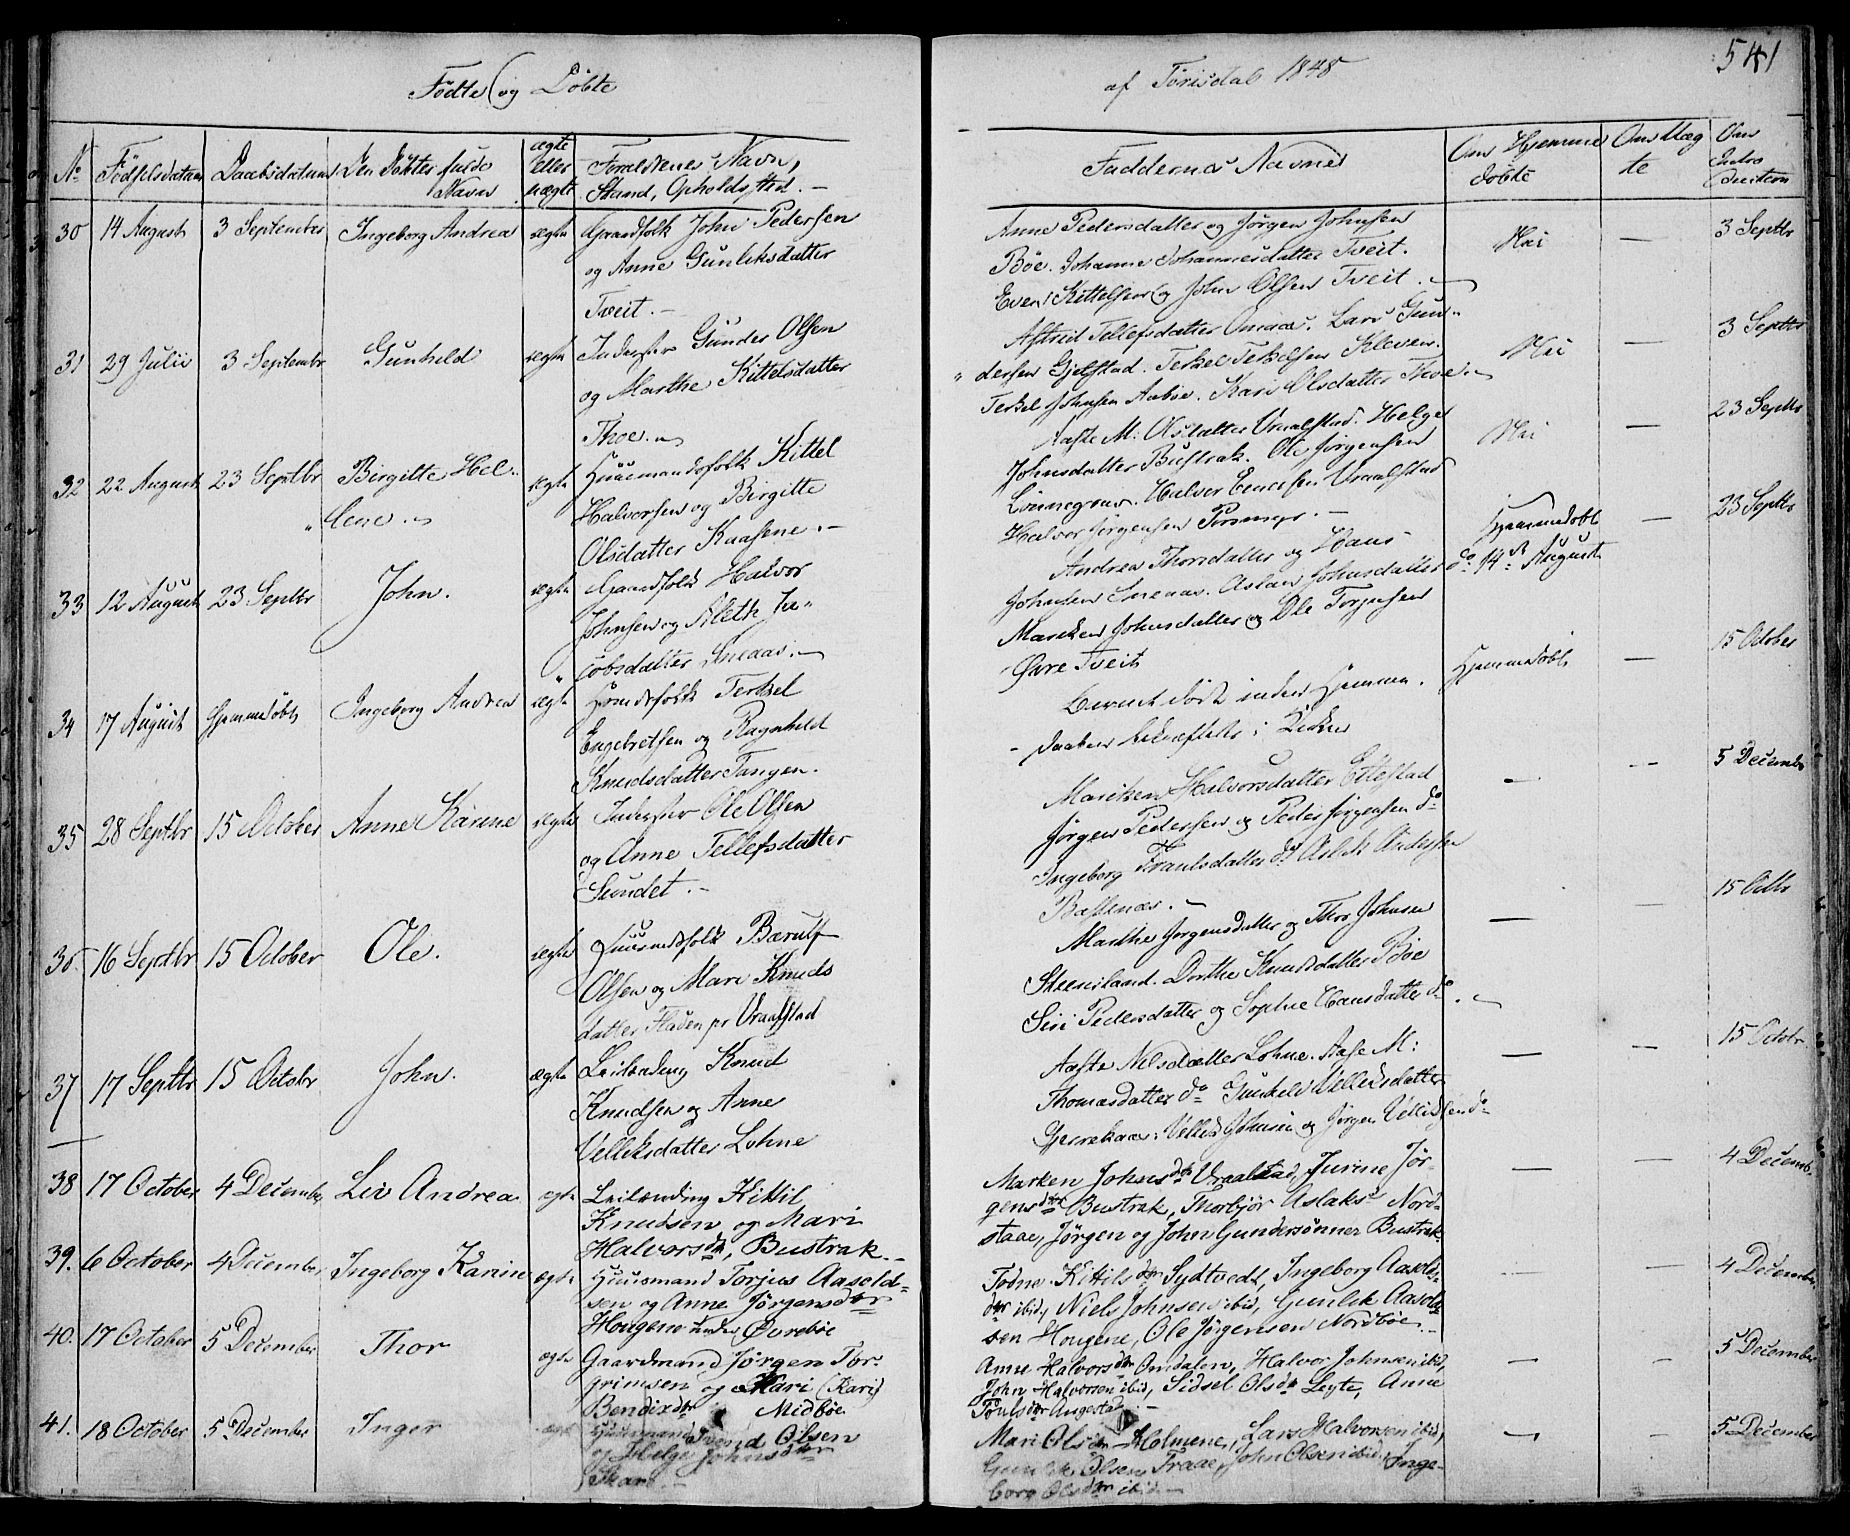 541
Födte og Döbte
af Törisdal 1848
No Födselsdatum Daabsdatum Den Döbtes fulde Navn ægte eller uægte Foraldrenes Navn, Stand, Opholdssted.
Faddernes Navne Om Hjemme döbte Om Væg te Om Intro duction
30 14 August 3 September Ingeborg Andrea ægte Gaardfolk John Pedersen
og Anne Gunleksdatter
Tveit.
Anne Pedersdatter og Jörgen Johnsen Nei — 3 Septbr
Böe. Johanne Johannesdatter Tveit.
Even Kittelsen og John Olsen Tveit.
31 29 Julii 3 Septembr Gunhild ægte Inderster Gunder Olsen
og Marthe Kittelsdatter
Thoe.
Astrid Tellefsdatter Omaas. Lars Gun- Nei — 3 Septbr
dersen Gjelstad. Terkel Terkelsen Kleven.
Terkel Johnsen Aabøe. Kari Olsdatter Thoe.
32 22 August 23 Septbr Birgitte Hel- ægte Huusmandsfolk Kittel
lene. Halvorsen og Birgitte
Olsdatter Kaasene.
Aaste M: Olsdatter Vraalstad. Helge Nei — 23 Septbr
Johnsdatter Bustrak. Ole Jörgensen
Halvor Evensen Vraalstad
Halvor Jörgensen
33 12 August 23 Septbr John. ægte Gaardfolk Halvor
Johnsen og Aleth Ja-
cobsdatter Sneaas.
Andrea Thorsdatter og Hans Hjemmedöbt — 23 Septbr
Johnsen Sneaas. Aslau Johnsdatter do 14de August
Mariken Johnsdatter og Ole Torjusen
Øvre Tveit
34 17 August Hjemmedöbt Ingeborg Andrea ægte Huusfolk Terkel
Engebretsen og Ragnhild
Knudsdatter Tangen.
Barnet döde inden Hjemme- Hjemmedöbt — 15 October
daaben bekræftedes i Kirken
35 28 Septbr 15 October Anne Karine ægte Inderster Ole Olsen
og Anne Tellefsdatter
Sundet.
Mariken Halvorsdatter Eilefstad — — 5 Decembr
Jörgen Pedersen og Peder Jörgensen do
Ingeborg Trouls­datter do Aslak Andersen
Bastenæs.
36. 16 Septbr 15 October Ole. ægte Huusmdsfolk Bærulf
Olsen og Mari Knuds
datter Fladen pr Vraalstad
Marthe Jorgensdatter og Thor Johnsen — — 15 Octbr
Steeniland. Dorthe Knudsdatter Böe
Siri Pedersdatter og Sophie Hansdatter do.
37 17 Septbr 15 Octobr John. ægte Leilending Knud
Knudsen og Anne
Velleksdatter Lohne
Aaste Nilsdatter Lohne. Aase M: — — 15 Octobr
Thomasdatter do Gunhild Velleksdatter
Vellek Johnsen og Jörgen Velleksen do
38 17 October 4 December Liv Andrea ægte Leilænding Kittil
Knudsen og Mari
Halvorsdtr, Bustrak.
Marken Johnsdtr Vraalstad, Jurine Jör- — — 4 Decemb.
gensdtr Bustrak, Thorbjör Aslaksdtr Nord-
staae, Jörgen og John Gundersönner Bustrak
39. 6 October 4 December Ingeborg Karine ægte Huusmand Torjus Aasold-
sen og Anne Jörgensdtr
Hougene under Øvreböe
Tödne Kittilsdtr Sydtvedt, Ingeborg Aasolds- — — 4 December
dtr ibid, Niels Johnsen ibid, Gunlek Aasold-
sen Hougene, Ole Jörgensen Nordböe.
40. 17 October 5 December Thor ægte Gaardmand Jörgen Tor-
grimsen og Mari (Kari)
Bendixdtr Midböe
Anne Halvorsdtr Omdalen, Halvor Johnsen ibid, — — 5 December
John Halvorsen ibid, Sidsel Olsdtr Legte, Anne
Toulsdtr Angestad.
41. 18 October 5 December Inger ægte Huusmand Svend Olsen
og Helge Johnsdtr
Skare.
Mari Olsdtr Holmene, Lars Halvorsen ibid, — — 5 December
Gunlek Olsen Traae, John Olsen ibid, Inge-
borg Olsdtr ibid.